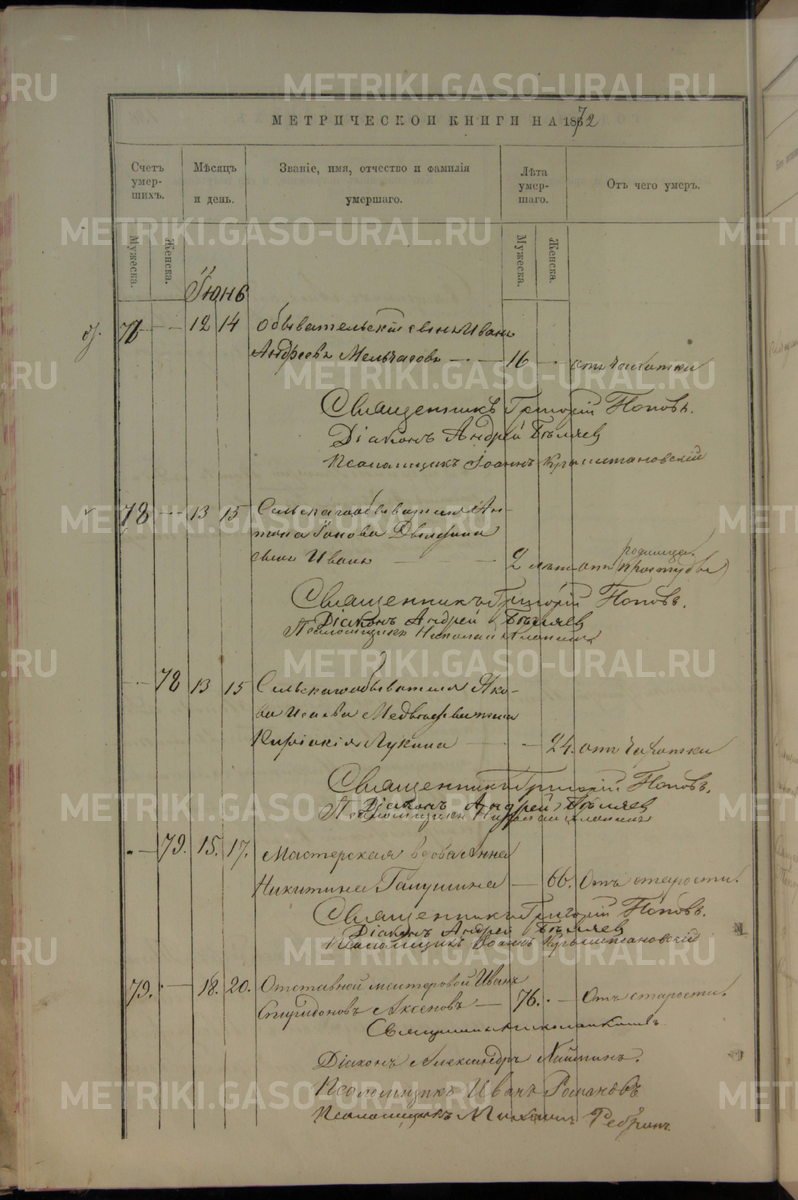 МЕТРИЧЕСКОЙ КНИГИ НА 1872
Счетъ умер-шихъ.
Мѣсяцъ и день.
Званіе, имя, отчество и фамилія умершаго.
Лѣта умер-шаго.
Отъ чего умеръ.
Мужеска.
Женска.
Мужеска.
Женска.
Іюнь
12 14 Обывательскій сынъ Иванъ
Андреевъ 16 отъ чахотки
Священникъ Григорій Поповъ.
Діаконъ Андрей Бѣляев
Псаломщикъ Іоаннъ
78 13 15 Сельскаго обывателя Ан-
тона
сынъ Иванъ 2 отъ простуды
родимца
Священникъ Григорій Поповъ.
Діаконъ Андрей Бѣляев
Псаломщикъ Николай
78 13 15 Сельскаго обывателя Яко-
ва Исаева жена
Лукина 24. отъ чахотки
Священникъ Григорій Поповъ.
Діаконъ Андрей Бѣляев
Псаломщикъ Николай
79. 15. 17. Мастерская вдова Анна
Никитина Галушина 66. Отъ старости.
Священникъ Григорій Поповъ.
Діаконъ Андрей Бѣляев
Псаломщикъ Іоаннъ
79. 18. 20. Отставной мастеровой Иванъ
Спиридоновъ Аксеновъ 76. Отъ старости.
Священникъ
Діаконъ Александръ
Псаломщикъ Иванъ Романовъ
Псаломщикъ Михаилъ
METRIKI.GASO-URAL.RU